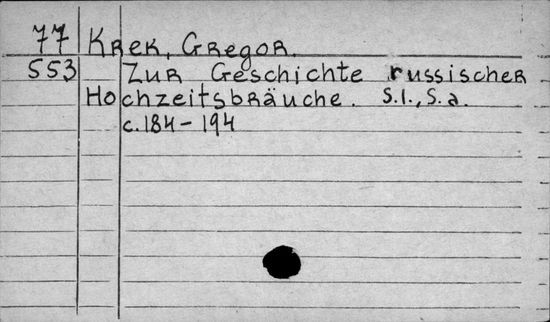 77 Krek, Gregor.
553 Zur Geschichte russischer
Hochzeitsbräuche. S.l., S.a.
c.184-194